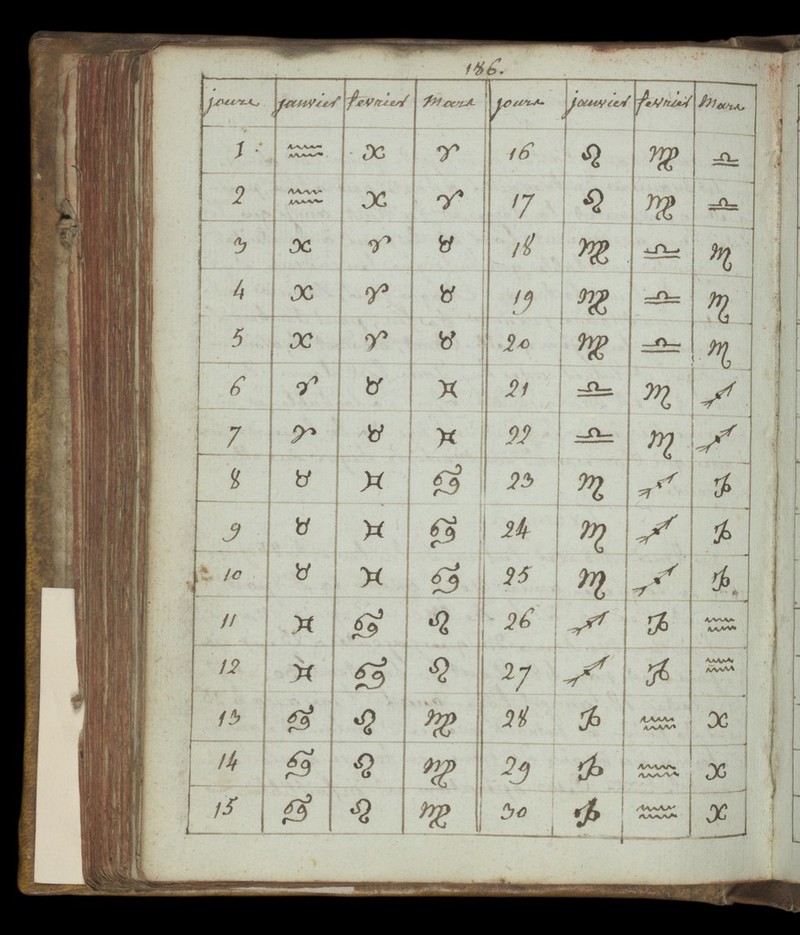 186.
jours janvier fevrier Mars jours janvier fevrier Mars
1 ♒ ♓ ♈ 16 ♌ ♍ ♎
2 ♒ ♓ ♈ 17 ♌ ♍ ♎
3 ♓ ♈ ♉ 18 ♍ ♎ ♏
4 ♓ ♈ ♉ 19 ♍ ♎ ♏
5 ♓ ♈ ♉ 20 ♍ ♎ ♏
6 ♈ ♉ ♊ 21 ♎ ♏ ♐
7 ♈ ♉ ♊ 22 ♎ ♏ ♐
8 ♉ ♊ ♋ 23 ♏ ♐ ♑
9 ♉ ♊ ♋ 24 ♏ ♐ ♑
10 ♉ ♊ ♋ 25 ♏ ♐ ♑
11 ♊ ♋ ♌ 26 ♐ ♑ ♒
12 ♊ ♋ ♌ 27 ♐ ♑ ♒
13 ♋ ♌ ♍ 28 ♑ ♒ ♓
14 ♋ ♌ ♍ 29 ♑ ♒ ♓
15 ♋ ♌ ♍ 30 ♑ ♒ ♓